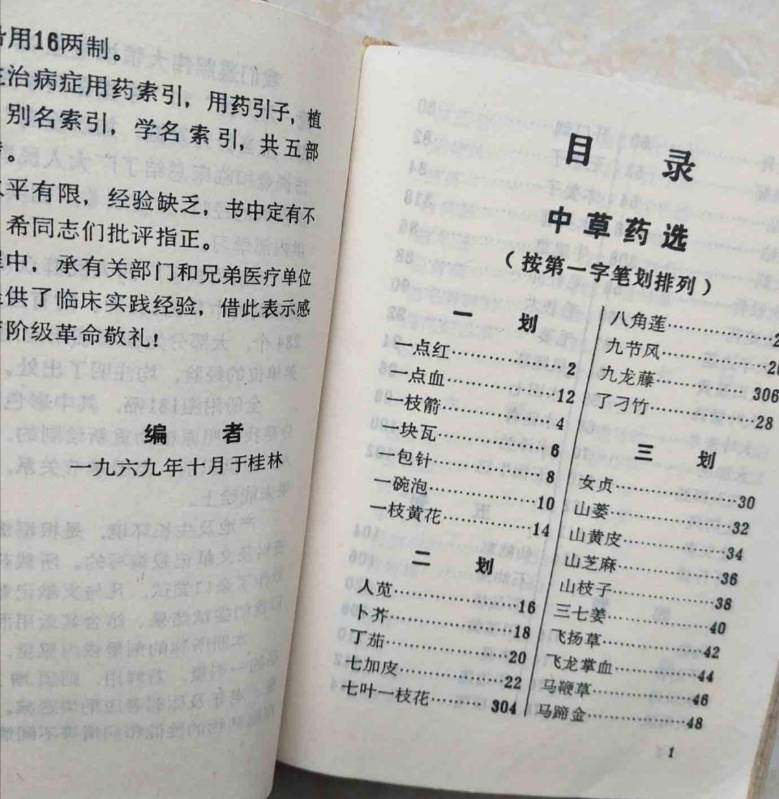 用16两制。
治病症用药索引，用药引子，植
别名索引，学名索引，共五部
。
平有限，经验缺乏，书中定有不
希同志们批评指正。
中，承有关部门和兄弟医疗单位
供了临床实践经验，借此表示感
阶级革命敬礼！
编 者
一九六九年十月于桂林
目 录
中草药选
（按第一字笔划排列）
一 划
一点红………2
一点血………12
一枝箭………4
一块瓦………6
一包针………8
一碗泡………10
一枝黄花………14
二 划
人苋………16
卜芥………18
丁茄………20
七加皮………22
七叶一枝花………304
八角莲………
九节风………
九龙藤………306
了刁竹………28
三 划
女贞………30
山蒌………32
山黄皮………34
山芝麻………36
山枝子………38
三七姜………40
飞扬草………42
飞龙掌血………44
马鞭草………46
马蹄金………48
1